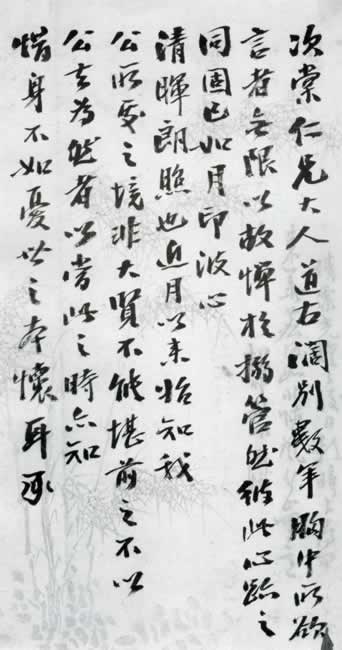 次棠仁兄大人道右阔别数年胸中所欲
言者无限以故惮於搦管然彼此心迹之
同固已如月印波心
清晖朗照也近月以来始知我
公所处之境非大贤不能堪前之不以
公去为然者以当此之时亦知
惜身不如忧以之本怀耳承